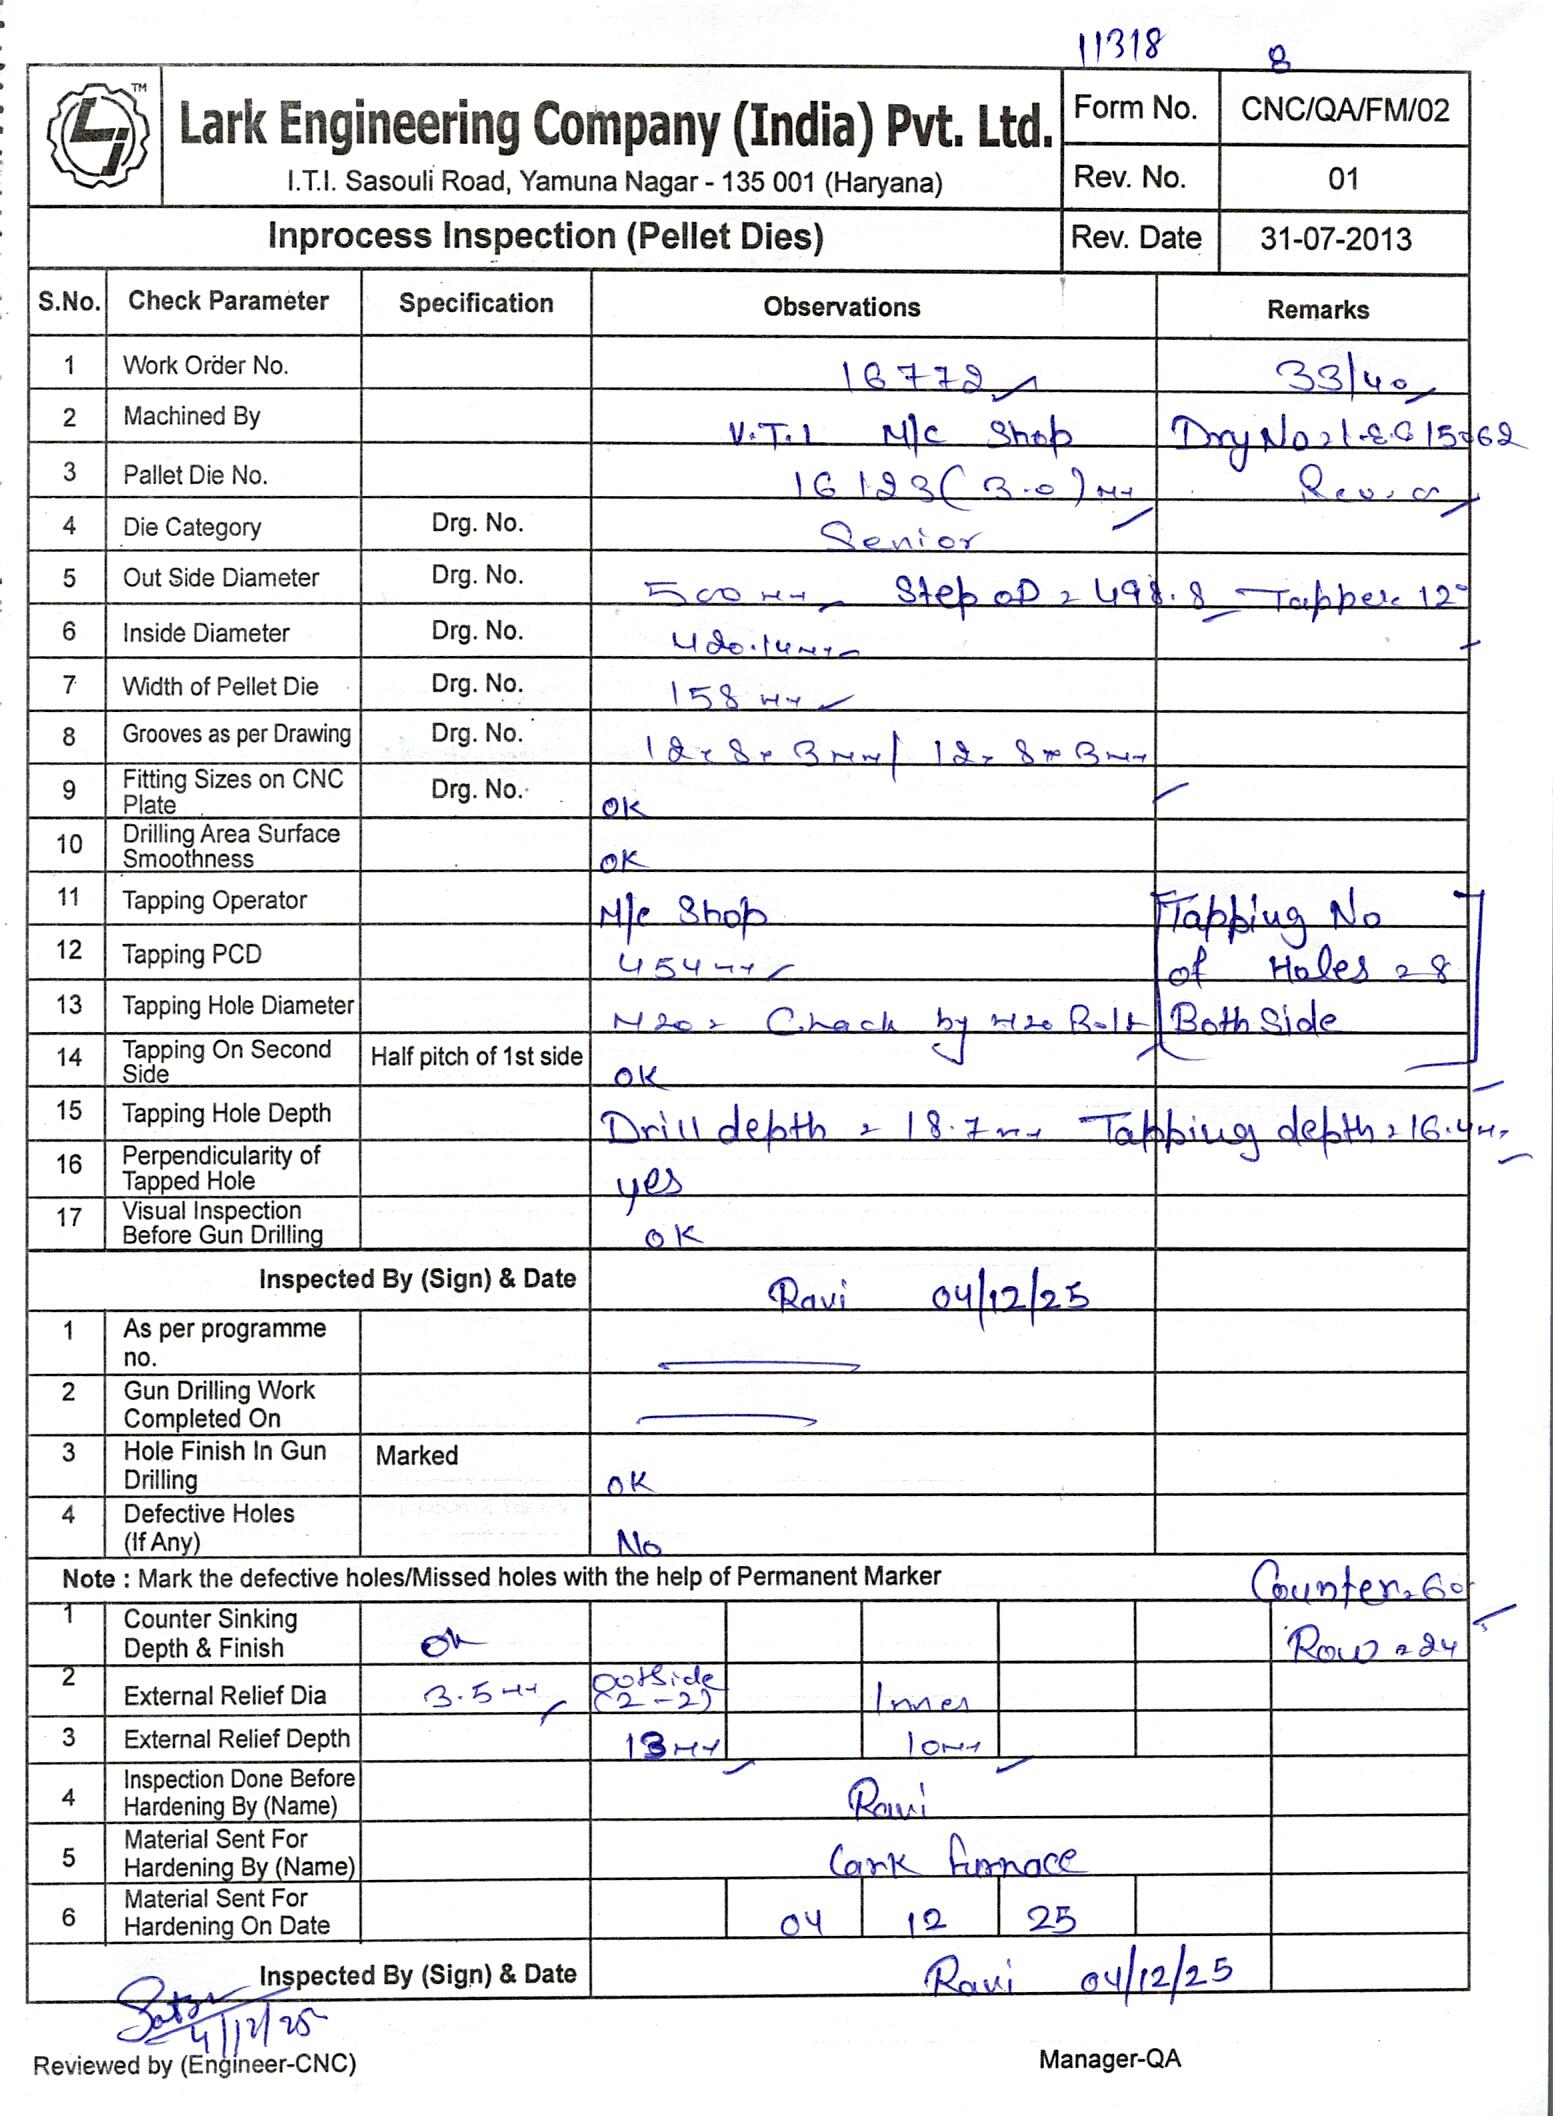 11318 8
TM
Lark Engineering Company (India) Pvt. Ltd.
I.T.I. Sasouli Road, Yamuna Nagar - 135 001 (Haryana)
Form No. CNC/QA/FM/02
Rev. No. 01
Inprocess Inspection (Pellet Dies) Rev. Date 31-07-2013
S.No. Check Parameter Specification Observations Remarks
1 Work Order No. 16772 33/40
2 Machined By V.T.L M/c Shop
3 Pallet Die No. 16123 (3.0) mm
4 Die Category Drg. No. Senior
5 Out Side Diameter Drg. No. 500 mm Step OD = 498.8 Tapper 12°
6 Inside Diameter Drg. No. 420.14 mm
7 Width of Pellet Die Drg. No. 158 mm
8 Grooves as per Drawing Drg. No. 12 x 8 x 3 mm / 12 x 8 x 3 mm
9 Fitting Sizes on CNC Plate Drg. No. OK
10 Drilling Area Surface Smoothness OK
11 Tapping Operator M/c Shop Tapping No
12 Tapping PCD 454 mm of Holes = 8
13 Tapping Hole Diameter M20 = Chack by M20 Bolt Both Side
14 Tapping On Second Side Half pitch of 1st side OK
15 Tapping Hole Depth Drill depth = 18.7 mm Tapping depth = 16.4 mm
16 Perpendicularity of Tapped Hole yes
17 Visual Inspection Before Gun Drilling OK
Inspected By (Sign) & Date Ravi 04/12/25
1 As per programme no.
2 Gun Drilling Work Completed On
3 Hole Finish In Gun Drilling Marked OK
4 Defective Holes (If Any) No
Note : Mark the defective holes/Missed holes with the help of Permanent Marker Counter = 60°
1 Counter Sinking Depth & Finish OK Row = 24
2 External Relief Dia 3.5 mm Outside (2-2) Inner
3 External Relief Depth 13 mm 10 mm
4 Inspection Done Before Hardening By (Name) Ravi
5 Material Sent For Hardening By (Name) Lark Furnace
6 Material Sent For Hardening On Date 04 12 25
Inspected By (Sign) & Date Ravi 04/12/25
4/12/25
Reviewed by (Engineer-CNC) Manager-QA